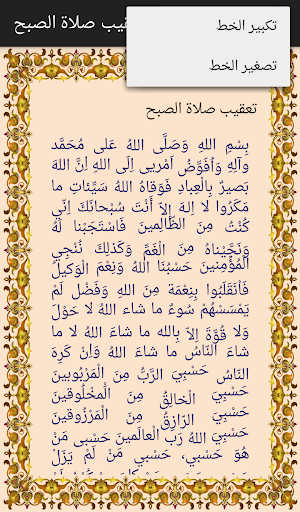 تعقيب صلاة الصبح
تكبير الخط
تصغير الخط
تعقيب صلاة الصبح
بِسْمِ اللهِ وَصَلَّى اللهُ عَلى مُحَمَّد
وَآلِهِ وَاُفَوِّضُ اَمْرِيى اِلَى اللهِ اِنَّ اللهَ
بَصيرٌ بِالْعِبادِ فَوَقاهُ اللهُ سَيِّئاتِ ما
مَكَرُوا لا اِلهَ اِلاّ أَنْتَ سُبْحانَكَ اِنّي
كُنْتُ مِنَ الظّالِمينَ فَاسْتَجَبْنا لَهُ
وَنَجَّيْناهُ مِنَ الْغَمِّ وَكَذلِكَ نُنْجِي
الْمُؤْمِنينَ حَسْبُنَا اللهُ وَنِعْمَ الْوَكيلُ
فَانْقَلَبُوا بِنِعْمَة مِنَ اللهِ وَفَضْل لَمْ
يَمْسَسْهُمْ سُوءٌ ما شاء اللهُ لا حَوْلَ
وَلا قُوَّةَ اِلاّ بِالله ما شاءَ اللهُ لا ما
شاءَ النّاسُ ما شاءَ اللهُ وَاِنْ كَرِهَ
النّاسُ حَسْبِيَ الرَّبُّ مِنَ الْمَرْبُوبينَ
حَسْبِيَ الْخالِقُ مِنَ الَْمخْلُوقينَ
حَسْبِيَ الرّازِقُ مِنَ الْمَرْزُوقينَ
حَسْبِيَ اللهُ رَبُّ الْعالَمينَ حَسْبى مَنْ
هُوَ حَسْبي، حَسْبي مَنْ لَمْ يَزَلْ